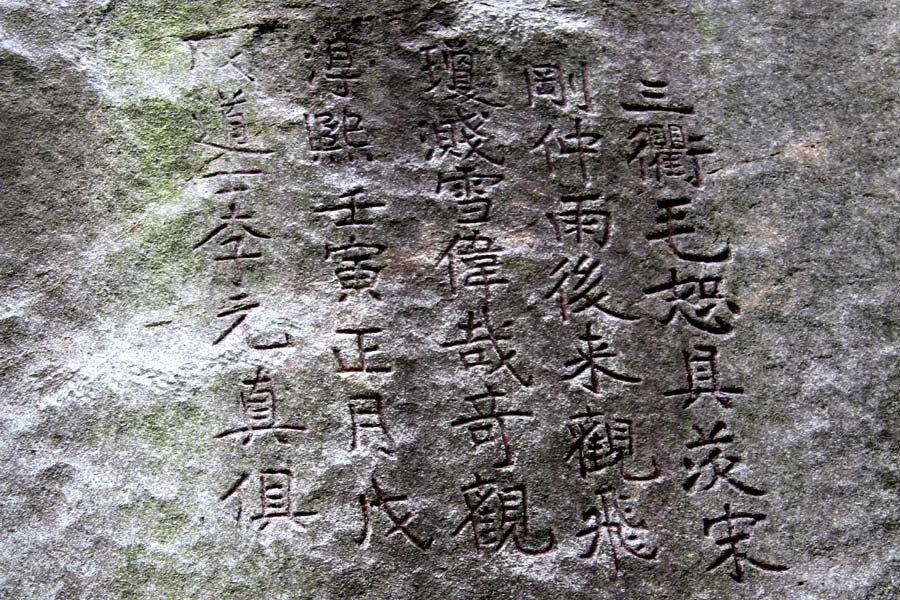 三衢毛恕具茨宋
剛仲雨後来觀飛
瓊濺雪偉哉奇觀
淳熙壬寅正月戊
道士李元真俱